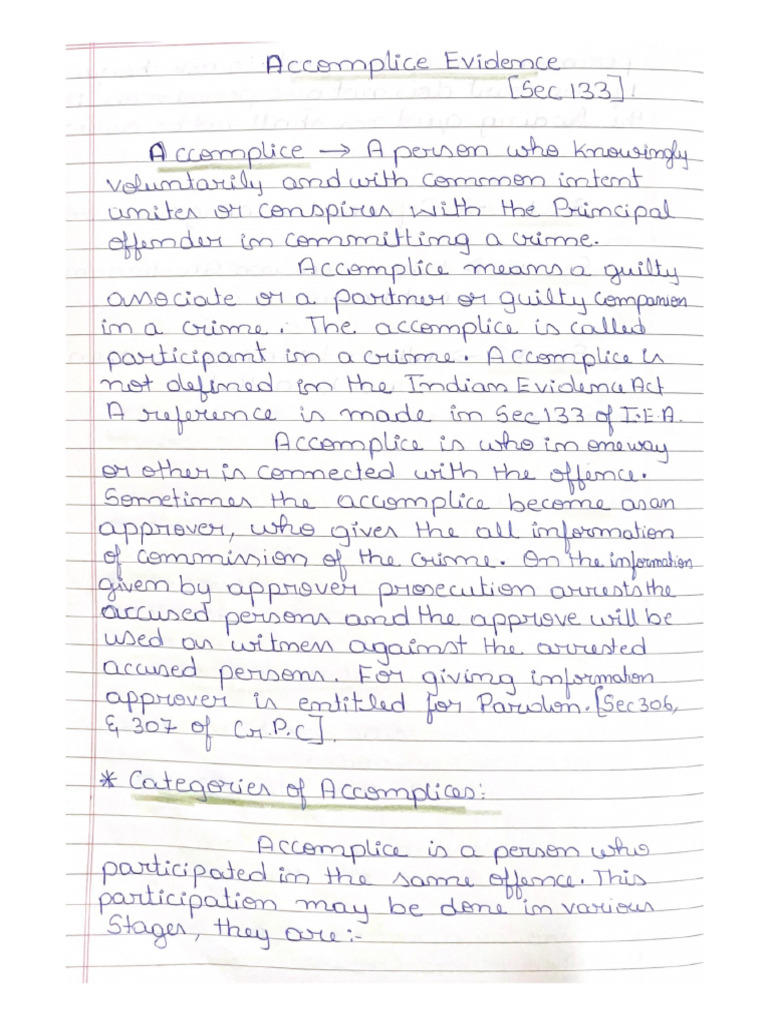 Accomplice Evidence
[Sec 133]
Accomplice → A person who knowingly
voluntarily and with common intent
unites or conspires with the Principal
offender in committing a crime.
Accomplice means a guilty
associate or a partner or guilty companion
in a crime. The accomplice is called
participant in a crisme. Accomplice is
not defined in the Indian Evidence Act
A reference is made in Sec 133 of I.E.A.
Accomplice is who in one way
or other is connected with the offence.
Sometimes the accomplice become as an
approver, who gives the all information
of commission of the crime. On the information
given by approver prosecution arrests the
accused persons and the approve will be
used as witness against the arrested
accused persons. For giving information
approver is entitled for Pardon. [Sec 306,
& 307 of Cr.P.C].
* Categories of Accomplices:
Accomplice is a person who
participated in the same offence. This
participation may be done in various
Stages, they are:-